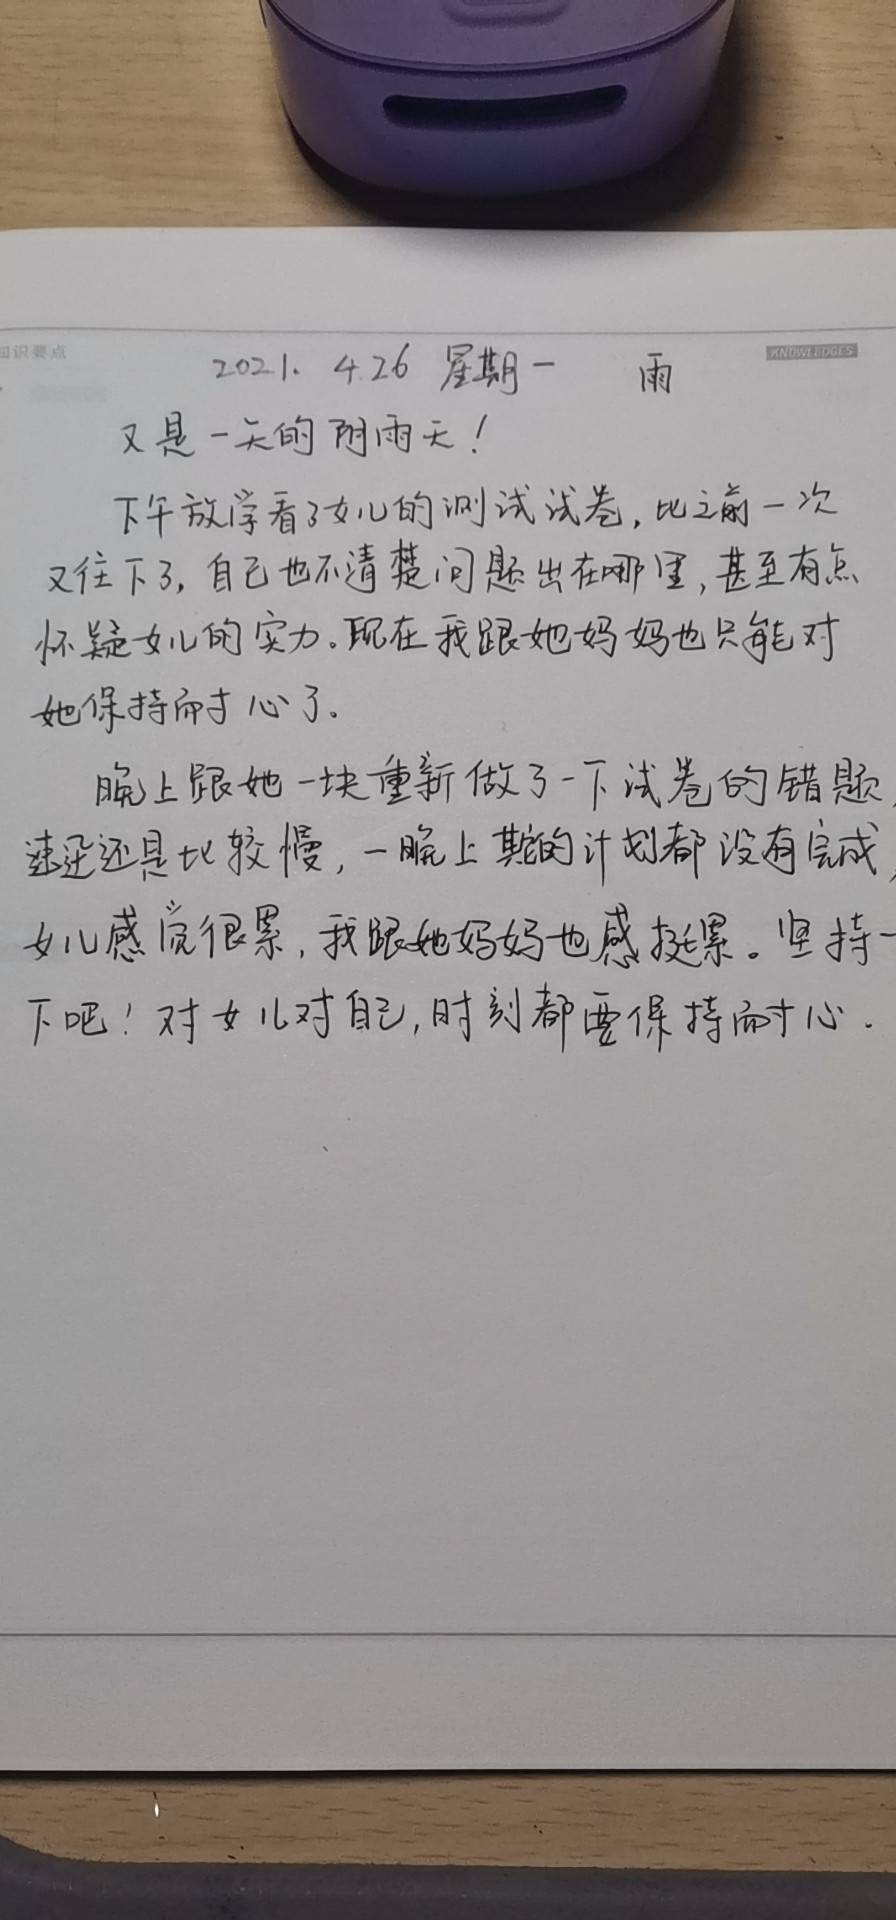 知识要点
KNOWLEDGES
2021. 4.26 星期一 雨
又是一天的阴雨天！
下午放学看了女儿的测试试卷，比之前一次
又往下了，自己也不清楚问题出在哪里，甚至有点
怀疑女儿的实力。现在我跟她妈妈也只能对
她保持耐心了.
晚上跟她一块重新做了一下试卷的错题，
速还是比较慢，一晚上其他的计划都没有完成，
女儿感觉很累，我跟她妈妈也感挺累。坚持一
下吧！对女儿对自己，时刻都要保持耐心.